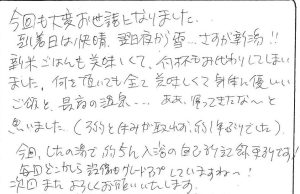 今回も大変お世話になりました。
到着日は快晴、翌日夜から雪…さすが新潟!!
新米ごはんも美味しくて、何杯もおかわりしてしまい
ました。何を頂いても全て美味しくて身体に優しい
ご飯と、最高の温泉… ああ、帰ってきたな〜と
思いました(るりと休みが取れず、約1年ぶりでした)
今回、したの湯で約5h入浴の自己新記録更新です!
毎回どこかしら設備がグレードアップしていますね〜!
次回また よろしくお願いいたします。